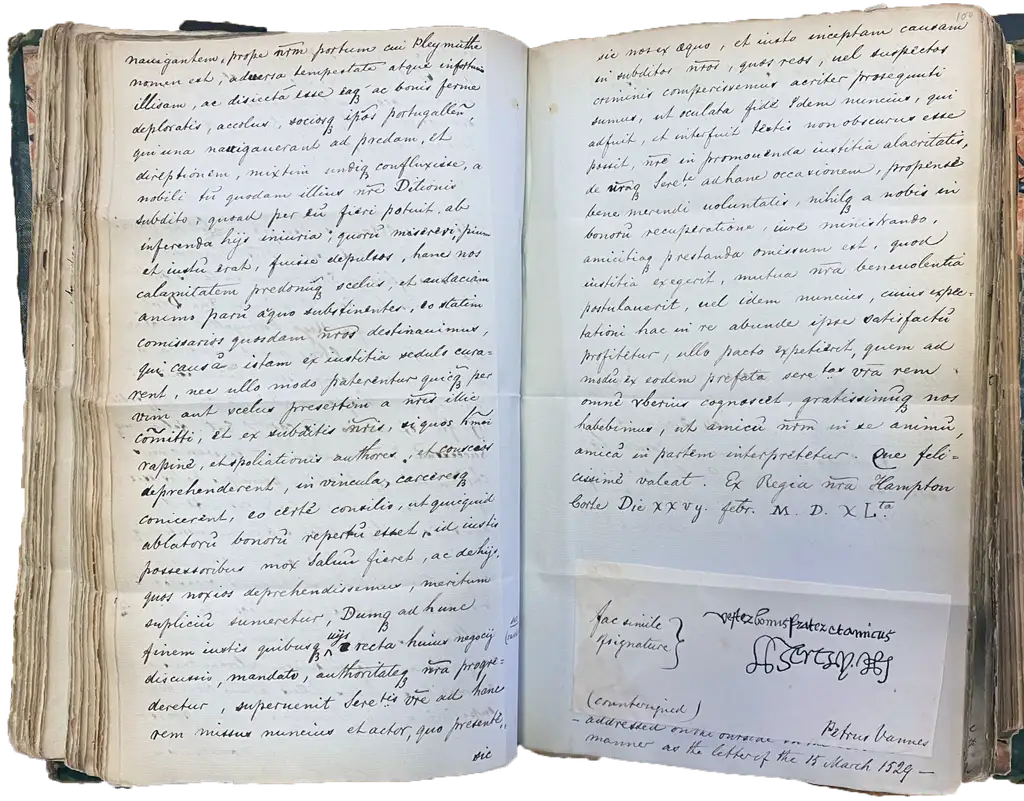 nauigantem, prope nr̄m portum cui Pleymuthe
nomen est, aduersa tempestate atque infortunio
illisam, ac disiectā esse eaqꝫ ac bonis ferme
deploratis, accolas, sociosqꝫ ip̄os portugallēn,
qui una nauigauerant ad predam, et
direptionem, mixtim undiqꝫ confluxisse, a
nobili tū quodam illius nr̄e Ditionis
subdito, quoad per eū fieri potuit, ab
inferenda hijs iniuria, quorū misereri, pium
et iustū erat, fuisse depulsos, hanc nos
calamitatēm predonūqꝫ scelus, et audaciam
animo parū aquo subsfinentes, eo statim
comissarios quosdam nr̄os destinauimus,
qui causā istam ex iustitia sedulo cura-
rent, nec ullo modo paterentur quicqꝫ per
vim aut scelus presertim a nr̄is illic
cōmitti, et ex subditis nr̄is, si quos hm̄oi
rapine, et spoliationis authores, et conscios
deprehenderent, in vincula, carceresqꝫ
conicerent, eo certe consilio, ut quicquid
ablatorū bonorū repertū esset, id iustis
possessoribus mox saluū fieret, ac de hijs
quos noxios deprehendissemus, meritum
supliciū sumeretur, Dumqꝫ ad hunc
finem iustis quibusqꝫ uijs recta huius negocij
discussio, mandato, authoritateqꝫ nr̄a progre-
deretur, superuenit Seretis vr̄e ad hanc
rem missus nuncius et actor, quo presente,
sic
100
sic nos ex æquo, et iusto inceptam causam
in subditos nr̄os, quos reos, uel suspectos
criminis comperissemus acriter prosequuti
sumus, ut oculata fide Idem nuncius, qui
adfuit, et interfuit testis non obscurus esse
possit, nr̄e in promouenda iustitia alacritatis,
de vr̄aqꝫ Serete ad hanc occasionem, propense
bene merendi uoluntatis, nihilqꝫ a nobis in
bonorū recuperatione, iure ministrando,
amicitiaqꝫ prestanda omissum est, quod
iustitia exegerit, mutua nr̄a beneuolentia
postulauerit, uel idem nuncius, cuius expec-
tationi hac in re abunde ipse satisfactū
profitetur, ullo pacto expetierit, quem ad
modū ex eodem prefata seretas vr̄a rem
omnē vberius cognoscet, gratissimūqꝫ nos
habebimus, ut amicū nr̄m in se animū,
amicā in partem interpretetur. Que feli-
cissime valeat. Ex Regia nr̄a Hampton
Corte Die xxvij. febr. M. D. X Lta.
fac simile
of signature }
vester bonus frater et amicus
(countersigned)
Petrus Vannes
– addressed on the outside in the
manner as the letter of the 15 March 1529 –